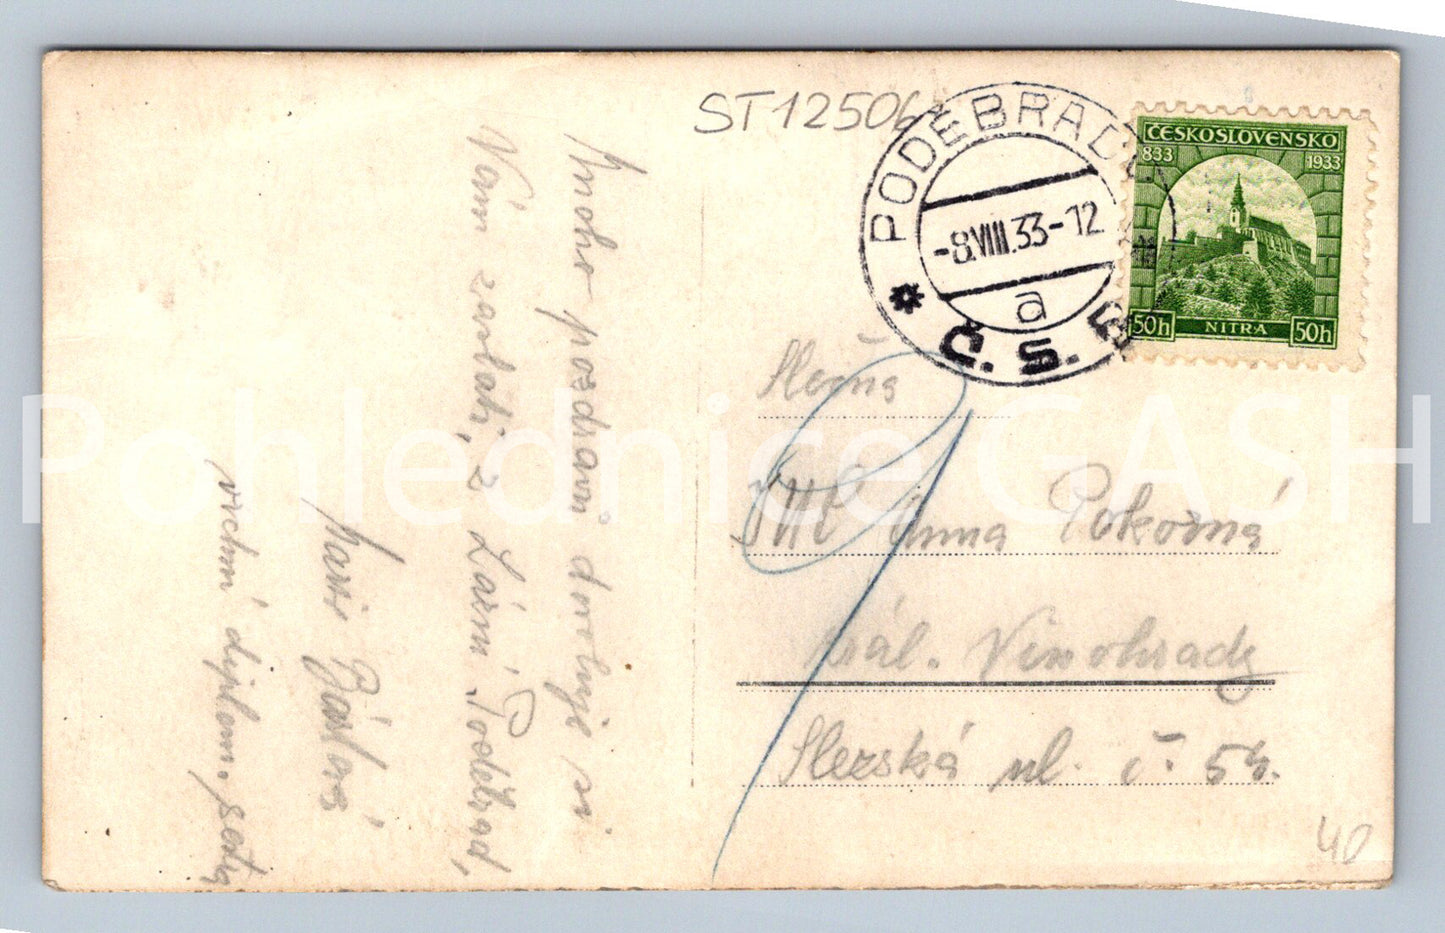 ST12506
PODĚBRADY
-8.VIII.33-12
a
Č.S.R.
ČESKOSLOVENSKO
833 1933
NITRA
50h 50h
Mnoho pozdravů dovoluje si
Vám zaslati, z Lázní Poděbrad,
Marie
vrchní
Slečna
Anna Pokorná
Král. Vinohrady
Slezská ul. č.
40
Pohlednice GASH